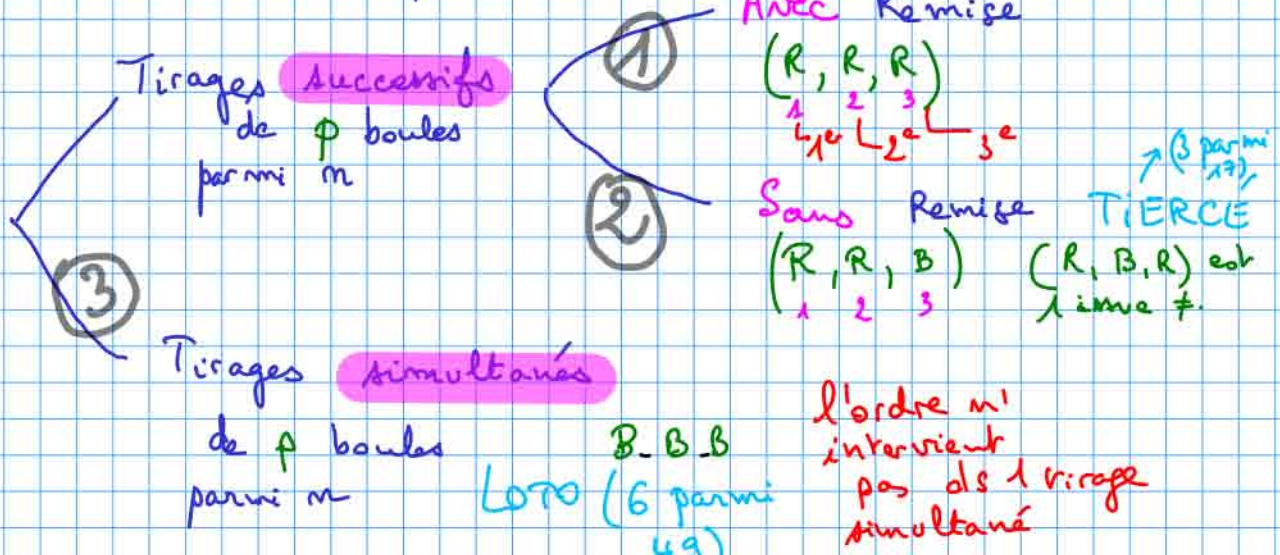 AVEC Remise
①
Tirages successifs
de p boules
parmi n
(R, R, R)
1 2 3
1e 2e 3e
②
Sans Remise
TIERCÉ
(3 parmi
17)
(R, R, B)
1 2 3
(R, B, R) est
1 issue ≠.
③
Tirages simultanés
de p boules
parmi n
B_B_B
LOTO (6 parmi
49)
l'ordre n'
intervient
pas ds 1 tirage
simultané